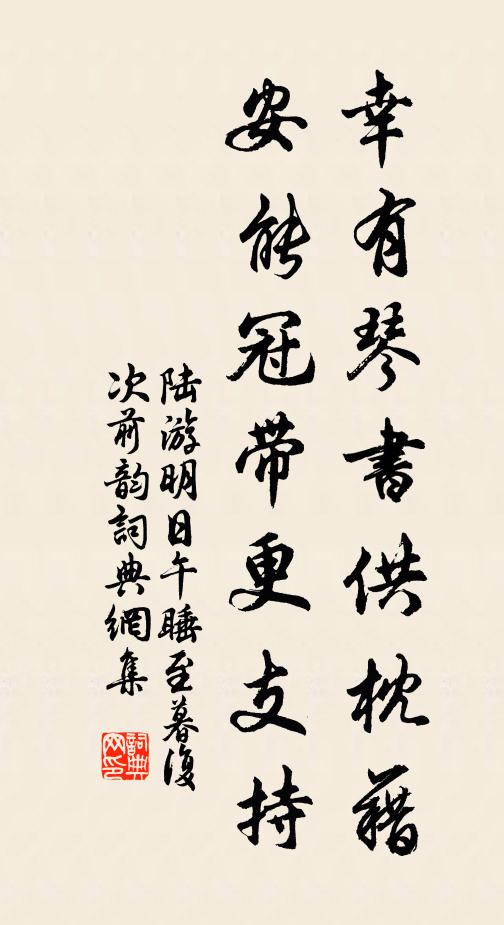 幸有琴書供枕藉
安能冠带更支持
陆游明日午睡至暮復
次前韵詞典網集
詞典网印